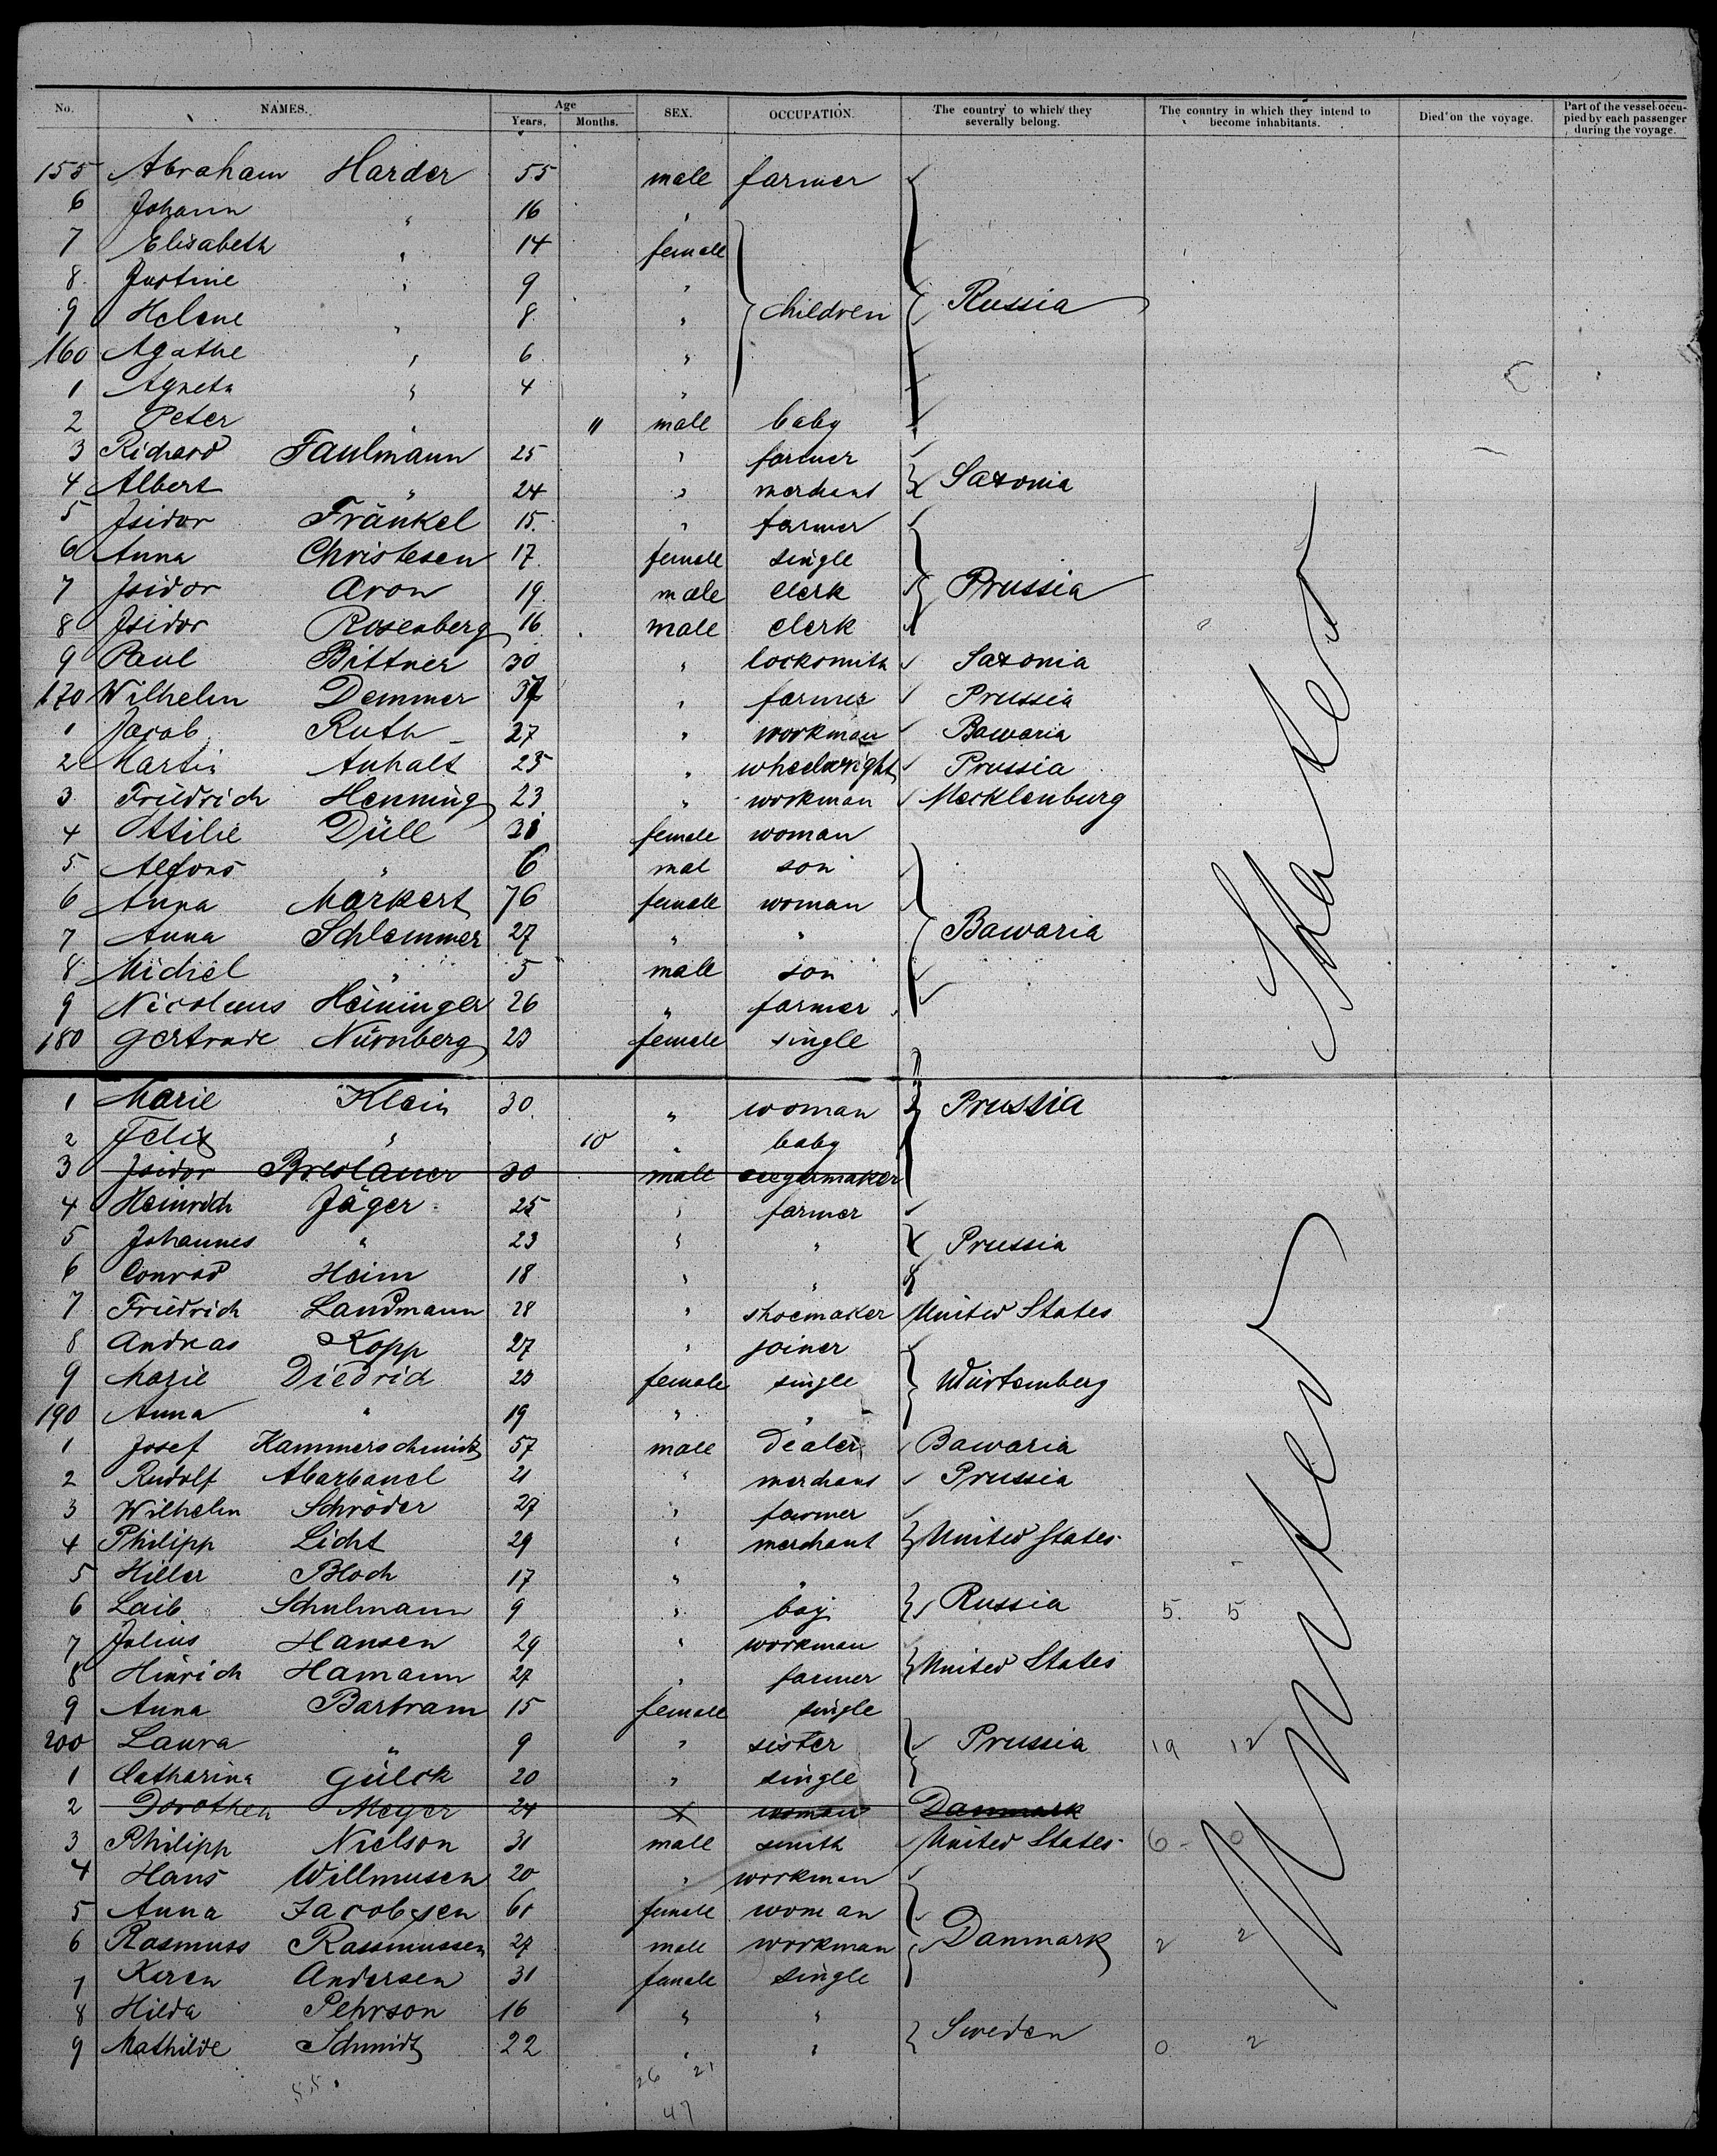 No. NAMES. Age Years. Months. SEX. OCCUPATION. The country to which they severally belong. The country in which they intend to become inhabitants. Died on the voyage. Part of the vessel occupied by each passenger during the voyage.
155 Abraham Harder 55 male farmer
6 Johann " 16 "
7 Elisabeth " 14 female
8 Justine " 9 "
9 Helene " 8 " children Russia
160 Agathe " 6 "
1 Agneta " 4 "
2 Peter " 11 male baby
3 Richard Faulmann 25 " farmer
4 Albert " 24 " merchant Saxonia
5 Isidor Fränkel 15 " farmer
6 Anna Christesen 17 female single
7 Isidor Aron 19 male clerk Prussia
8 Isidor Rosenberg 16 male clerk
9 Paul Bittner 30 " locksmith Saxonia
170 Wilhelm Demmer 37 " farmer Prussia
1 Jacob Ruth 27 " workman Bawaria
2 Martin Anhalt 25 " wheelwright Prussia
3 Friedrich Henning 23 " workman Mecklenburg
4 Ottilie Düll 31 female woman
5 Alfons " 6 mal son
6 Anna Markert 76 female woman
7 Anna Schlemmer 27 " " Bawaria
8 Michel " 5 male son
9 Nicolaus Heininger 26 " farmer
180 Gertrude Nürnberg 23 female single
1 Marie Klein 30 " woman Prussia
2 Felix " 10 " baby
3 Isidor Breslauer 30 male seegarmaker
4 Heinrich Jäger 25 " farmer
5 Johannes " 23 " " Prussia
6 Conrad Heim 18 " "
7 Friedrich Landmann 28 " shoemaker United States
8 Andreas Kopp 27 " joiner
9 Marie Diedrich 23 female single Würtemberg
190 Anna " 19 " "
1 Josef Kammerschmidt 57 male Dealer Bawaria
2 Rudolf Abarbanel 21 " merchant Prussia
3 Wilhelm Schröder 27 " farmer
4 Philipp Licht 29 " merchant United States
5 Hiller Bloch 17 " "
6 Laib Schulmann 9 " boy Russia 5 5
7 Julius Hansen 29 " workman
8 Hinrich Hamann 27 " farmer United States
9 Anna Bartram 15 female single
200 Laura " 9 " sister Prussia 19 12
1 Catharina Gülck 20 " single
2 Dorothea Meyer 24 woman Danmark
3 Philipp Nielson 31 male smith United States 6 0
4 Hans Willmusen 20 " workman
5 Anna Jacobsen 60 female woman
6 Rasmuss Rassmussen 27 male workman Danmark 2 2
7 Karen Andersen 31 female single
8 Hilda Pehrson 16 " "
9 Mathilde Schmidt 22 " " Sweden 0 2
55 26 21
47
United States